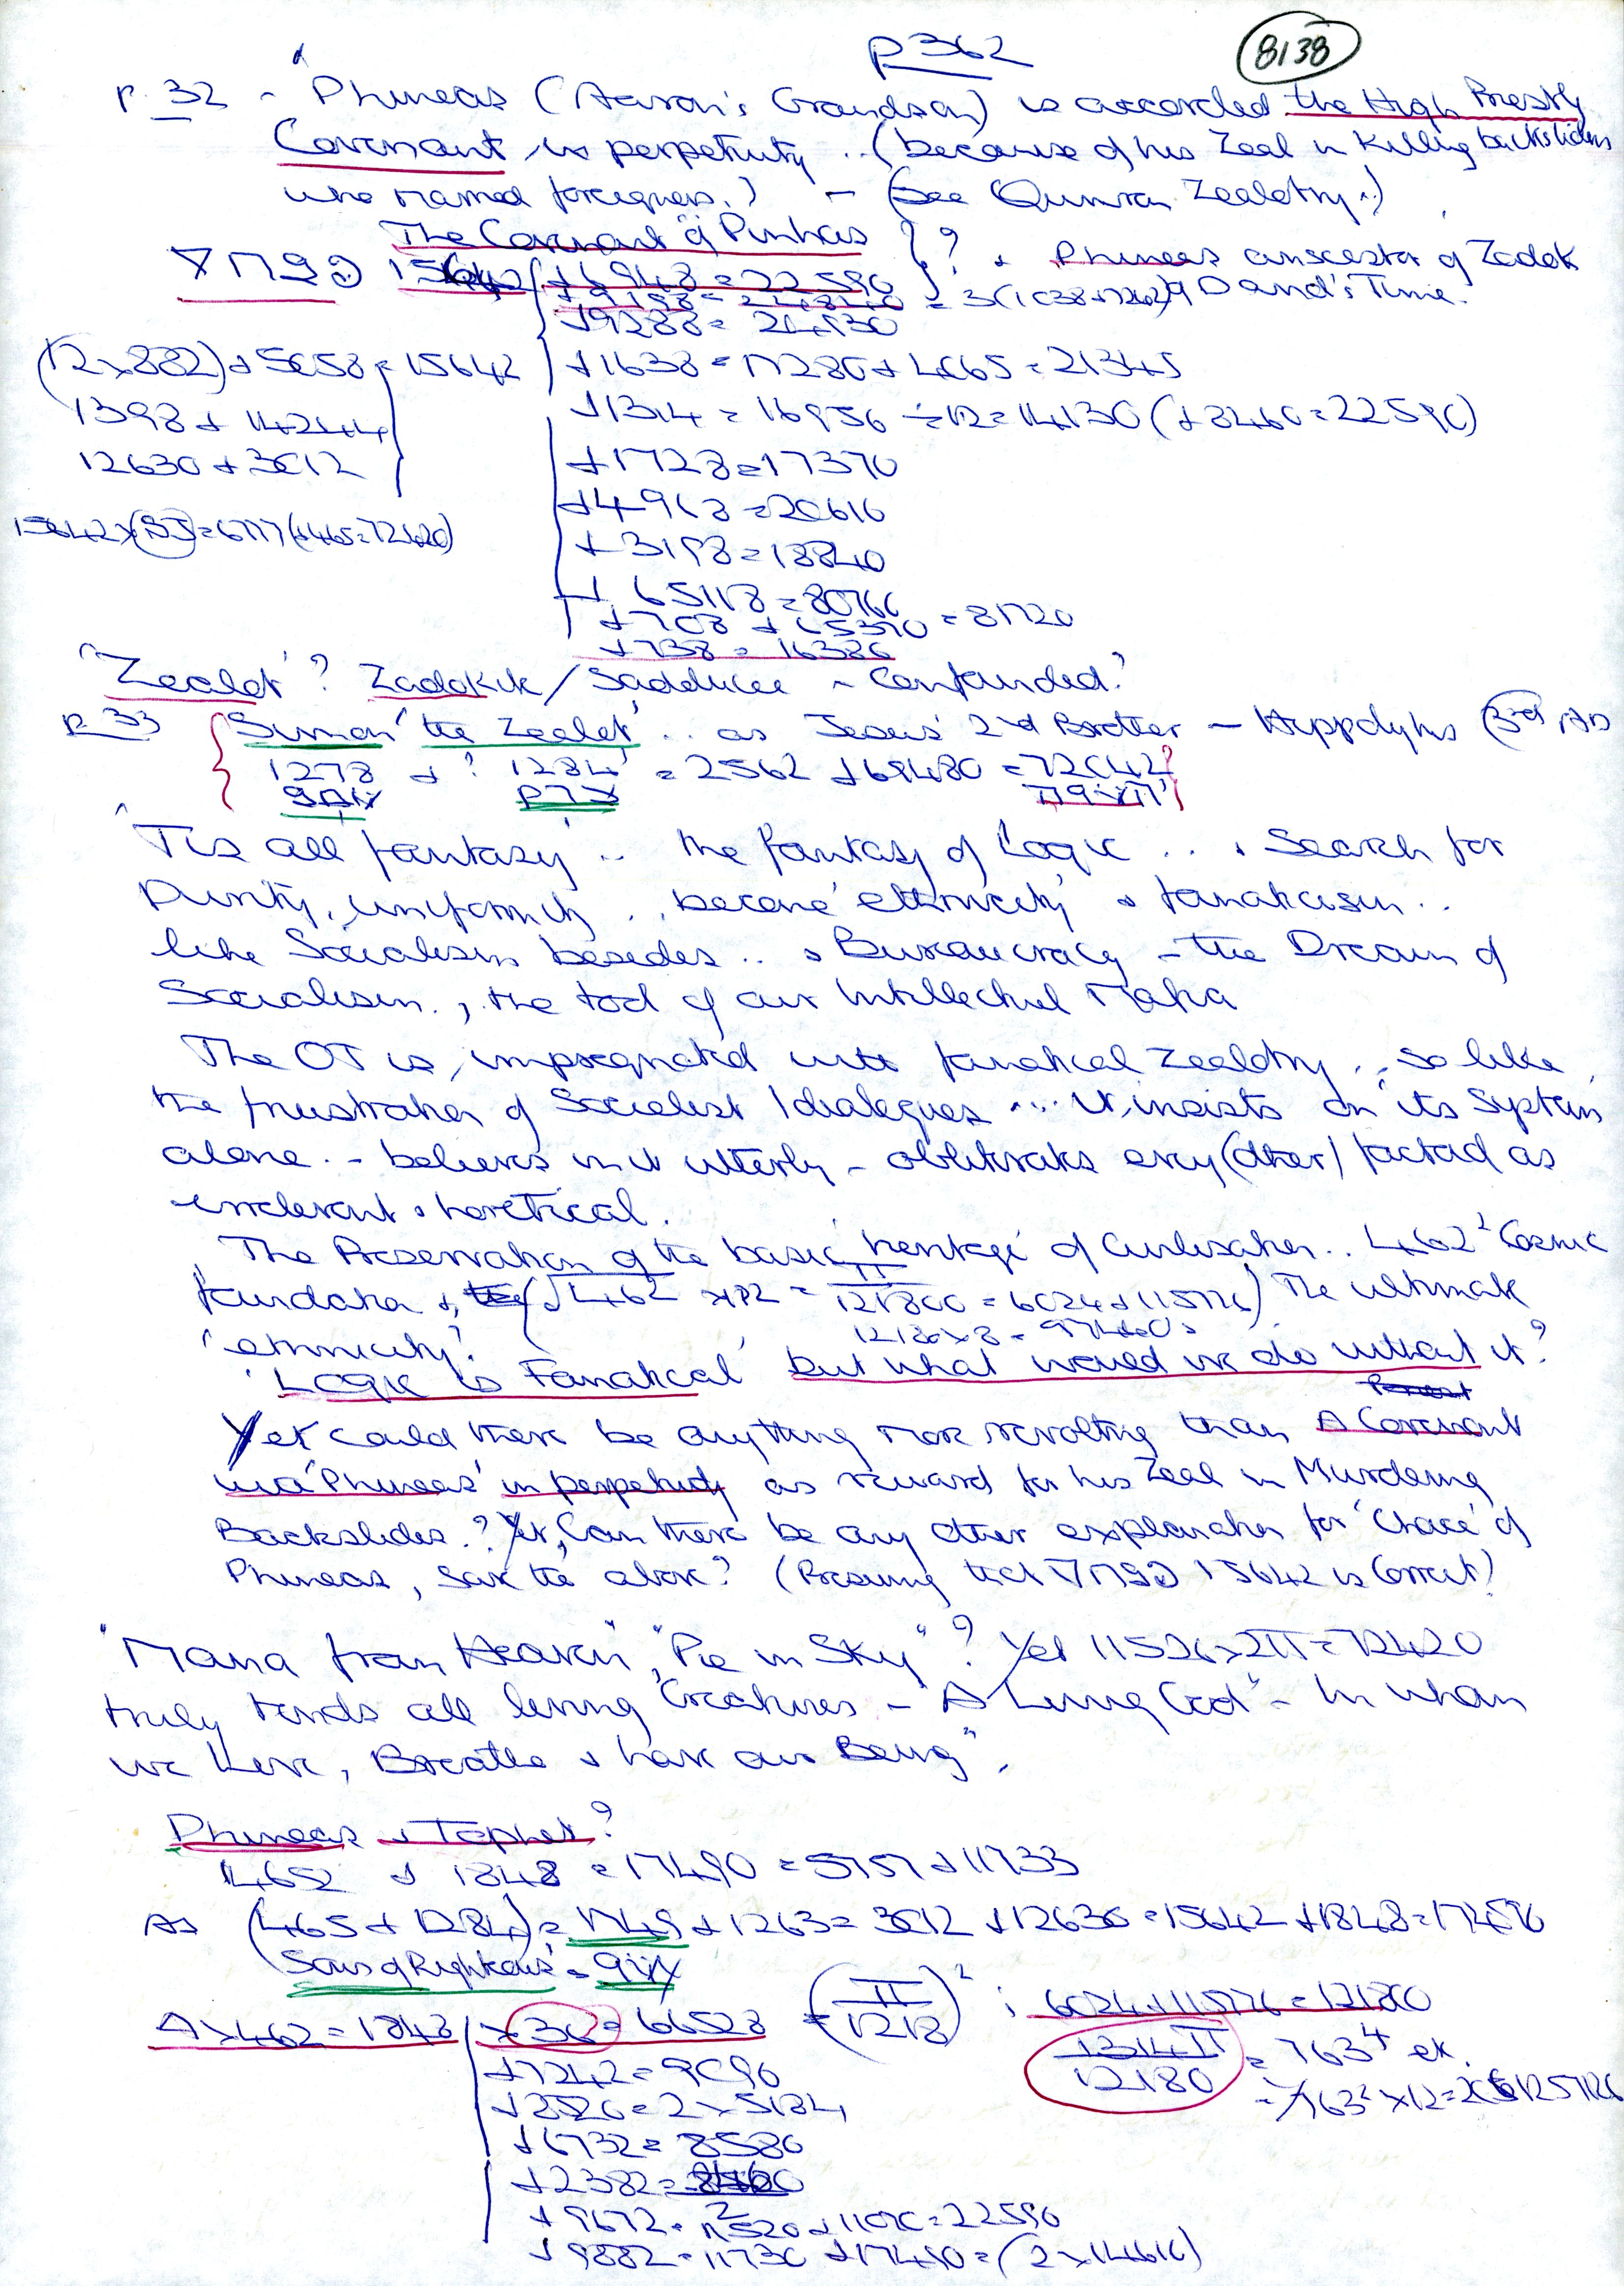 p362
8138
p. 32 - "Phineas (Aaron's Grandson) is accorded the High Priestly
Covenant in perpetuity .. (because of his Zeal in killing backsliders
who married foreigners.) - (See Qumran Zealotry..)
The Covenant of Pinhas } ? & Phineas anscestor of Zadok
15642 +6948 = 22590
+9198 = 24840 = 3( David's Time.
+9288 = 24930
(12x882)+5058 = 15642
+1638 = 17280 + 4065 = 21345
1398 + 14244
+1314 = 16956 ÷12 = 14130 (+8460 = 22590)
12630 + 3012
+1728 = 17370
+4968 = 20610
+3198 = 18840
+ 65118 = 80760
+708 + 65370 = 81720
+738 = 16380
'Zealot' ? Zadokite/Sadducee - Confounded?
p. 33 Simon 'the Zealot' .. as Jesus' 2nd Brother - Hyppolytus (3rd AD
1278 + ? 1284 = 2562 + 69480 = 72042?
'Tis all fantasy' .. the fantasy of Logic .. & Search for
Purity, uniformity .. become 'ethnicity' & fanaticism ..
like Socialism besides .. & Bureaucracy - the Dream of
Socialism., the tool of our Intellectual Mafia
The OT is, impregnated with fanatical zealotry .. so like
the frustration of Socialist Idealogues ... It, insists on its System
alone. - believes in it utterly - obliterates every (other) factoid as
irrelevant & heretical.
The Preservation of the basic 'heritage' of Civilisation .. 462² Cosmic
foundation &, (√462 x12 = π/121800 = 6024 + 115776) The ultimate
12180 x 8 = 97440
'ethnicity'?
'Logic is Fanatical' but what would we do without it?
Yet could there be anything more revolting than A Covenant
with 'Phineas' in perpetuity as reward for his Zeal in Murdering
Backsliders.? Yet, Can there be any other explanation for 'Choice' of
Phineas, save the above? (Presuming that 15642 is Correct!)
"Mana from Heaven", "Pie in Sky" ? Yet 11526 x 2π = 72420
truly tends all living Creatures - "A Living God" - In whom
we Live, Breathe & have our Being".
Phineas & Tophet?
4652 + 1848 = 17490 = 5757 + 11733
As (465 + 1284) = 1749 + 1263 = 3012 + 12630 = 15642 + 1848 = 17490
'Sons of Righteous' =
4 x 462 = 1848 x 36 = 66528 = (π/1218)² ; 6024 + 115776 = 121800
+7242 = 9090
1314π/12180 = 763⁴ ex.
+8520 = 2 x 5184
+6732 = 8580
+2382 =
+9672 = 11520 + 11070 = 22590
+9882 = 11730 + 17490 = (2 x 14610)